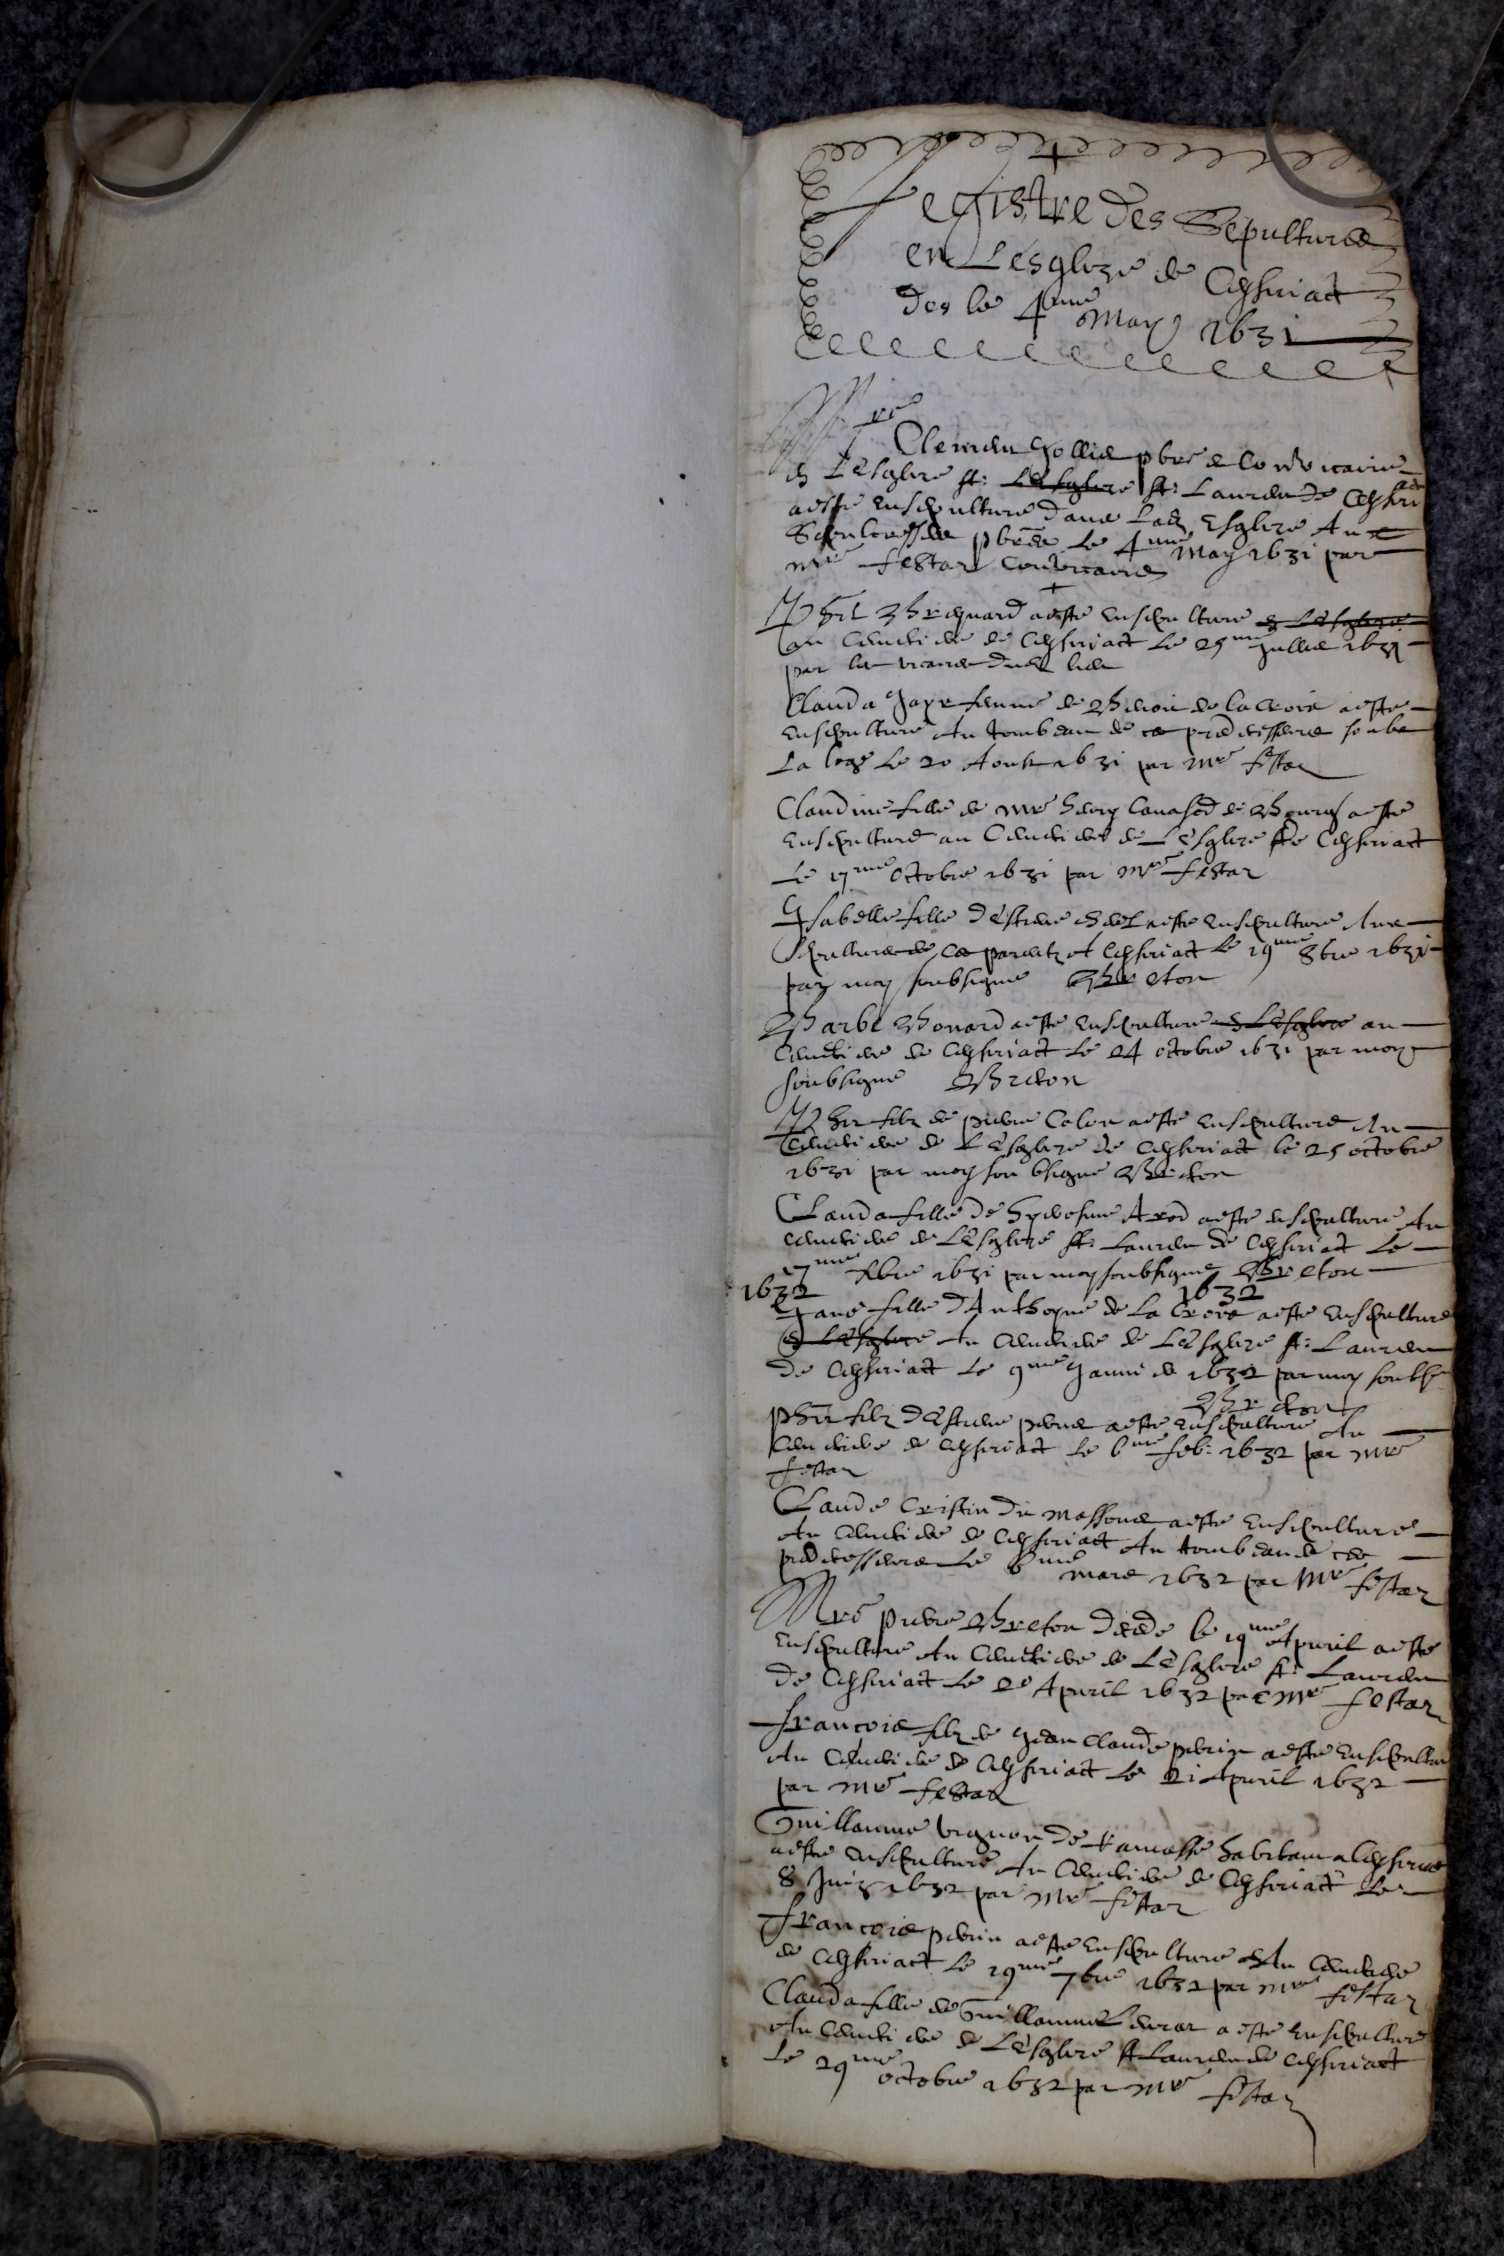 Registre des Sepultures
en Lesglize de Ceyseriact
des le 4eme May 1631
Mre Clement pbre Convicaire
en Lesglize St: Lesglize St: Laurent de Ceyseriact
a esté ensepulturé dans Lad. Esglize Au
pbres Le 4eme May 1631 par
mre festaz Convicaire
aesté ensepulturé en Lesglize
au cimetiere de Ceyseriact Le 25me Juillet 1631
par les vicaires dud lieu
Clauda femme de de la Croix aesté
ensepulturé Au tombeau de ces predecesseurs soubz
La loge Le 20 Aoust 1631 par Mre festaz
Claudine fille de Mre de Bourg aesté
ensepulturé au Cimetiere de Lesglize de Ceyseriact
Le 17me Octobre 1631 par Mre festaz
Ysabelle fille d'Estiene aesté ensepulturé Aux
sepultures de ces parentz A Ceyseriact Le 19me 8bre 1631
par moy soubsigné Breton
Barbe Bonard aesté ensepulturé en Lesglize au
cimetiere de Ceyseriact Le 24 octobre 1631 par moy
soubsigné Breton
filz de pierre Colon aesté ensepulturé Au
Cimetiere de Lesglize de Ceyseriact le 25 octobre
1631 par moy soubsigné Breton
Clauda fille de aesté ensepulturé Au
cimetiere de Lesglize St: Laurent de Ceyseriact Le
17me Xbre 1631 par moy soubsigné Breton
1632 1632
Jane fille d'Anthoyne de La Croix aesté ensepulturé
en Lesglize Au Cimetiere de Lesglize St: Laurent
de Ceyseriact Le 9me Janvier 1632 par moy soubsé
Breton
filz d'Estiene aesté ensepulturé Au
Cimetiere de Ceyseriact Le 6me feb: 1632 par Mre
festaz
Claude Cristin dit aesté ensepulturé
Au Cimetiere de Ceyseriact Au tombeau de ces
predecesseurs Le 6me mars 1632 par Mre festaz
Mre pierre Breton le 19me Apvril aesté
ensepulturé Au Cimetiere de Lesglize St: Laurent
de Ceyseriact Le 20 Apvril 1632 par Mre festaz
francois filz de Jean Claude aesté ensepulturé
Au Cimetiere de Ceyseriact Le 21 Apvril 1632
par Mre festaz
Guillaume Vignon de Ramasse habitant a Ceyseriact
aesté ensepulturé Au Cimetiere de Ceyseriact Le
8 Juin 1632 par Mre festaz
francois aesté ensepulturé Au Cimetiere
de Ceyseriact Le 19me 7bre 1632 par Mre festaz
Clauda fille de Guillaume aesté ensepulturé
Au Cimetiere de Lesglize St Laurent de Ceyseriact
Le 29me octobre 1632 par Mre festaz